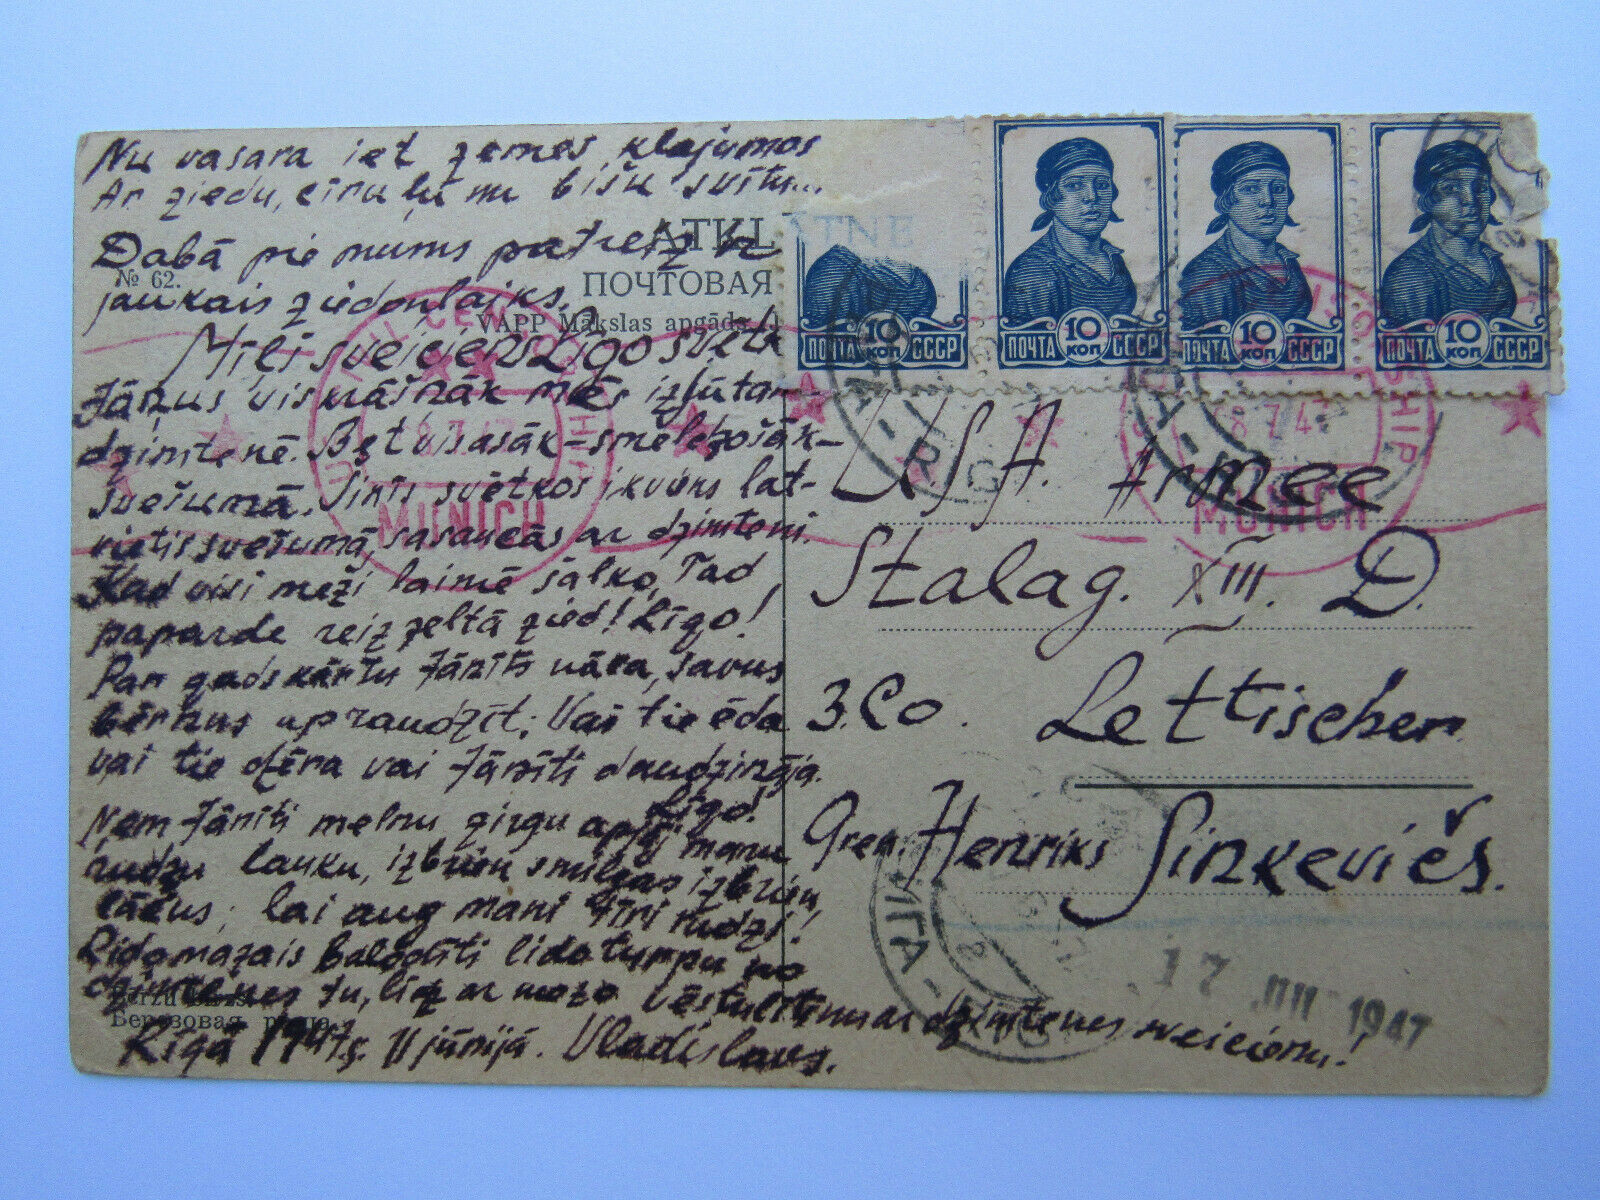 Nu vasara iet zemes klajumos
Ar ziedu, cīruļu un bišu svītu...
Dabā pie mums patreiz ir
jaukais ziedonlaiks.
Mīļi sveiciens Līgo svētk
Jāņus viskrāšņāk mēs izjūtam
dzimtenē. Bet visasāk-smeldzošāk-
svešumā. Šinīs svētkos ikviens lat-
vietis svešumā, sasaucās ar dzimteni.
Kad visi meži laimē šalko, Tad
paparde reiz zeltā zied! Līgo!
Par gadskārtu Jānīts nāca, savus
bērnus apraudzīt; Vai tie ēda
vai tie dzēra vai Jānīti daudzināja.
Līgo!
Ņem Jānīti melnu zirgu apjāj manu
rudzu lauku, izbrien smilgas izbrien
lācus, lai aug mani tīri rudzi!
Lido mazais balodīti lido turpu no
dzimtenes
vēstulītimu ar dzimtenes sveicienu!
Rīgā 1947g. jūnijā. Vladislavs.
№ 62.
ATKLĀTNE
ПОЧТОВАЯ
VAPP Mākslas apgāds
Березовая роща
ПОЧТА 10 КОП СССР
ПОЧТА 10 КОП СССР
ПОЧТА 10 КОП СССР
ПОЧТА 10 КОП СССР
CENSORSHIP
8.7.47
MUNICH
CENSORSHIP
8.7.47
MUNICH
U.S.A. Armee
Stalag. XIII. D.
3. Co. Lettischer
Gren. Henriks Sinkevičs.
РИГА
17 1947